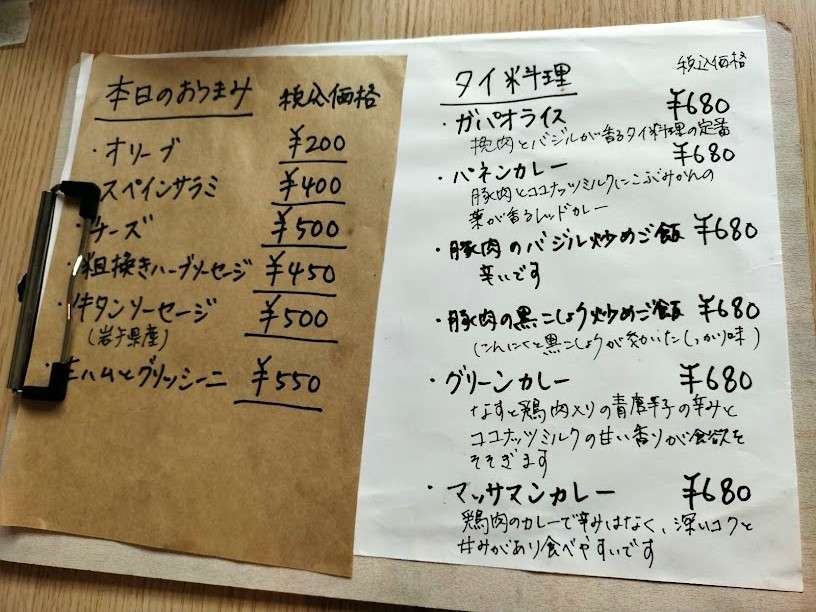 本日のおつまみ 税込価格
・オリーブ ¥200
スペインサラミ ¥400
チーズ ¥500
・粗挽きハーブソーセージ ¥450
・牛タンソーセージ ¥500
(岩手県産)
生ハムとグリッシーニ ¥550
税込価格
タイ料理
・ガパオライス ¥680
挽肉とバジルが香るタイ料理の定番
・パネンカレー ¥680
豚肉とココナッツミルクにこぶみかんの
葉が香るレッドカレー
・豚肉のバジル炒めご飯 ¥680
辛いです
・豚肉の黒こしょう炒めご飯 ¥680
(にんにくと黒こしょうが効いたしっかり味)
・グリーンカレー ¥680
なすと鶏肉入りの青唐辛子の辛みと
ココナッツミルクの甘い香りが食欲を
そそぎます
・マッサマンカレー ¥680
鶏肉のカレーで辛みはなく、深いコクと
甘みがあり食べやすいです